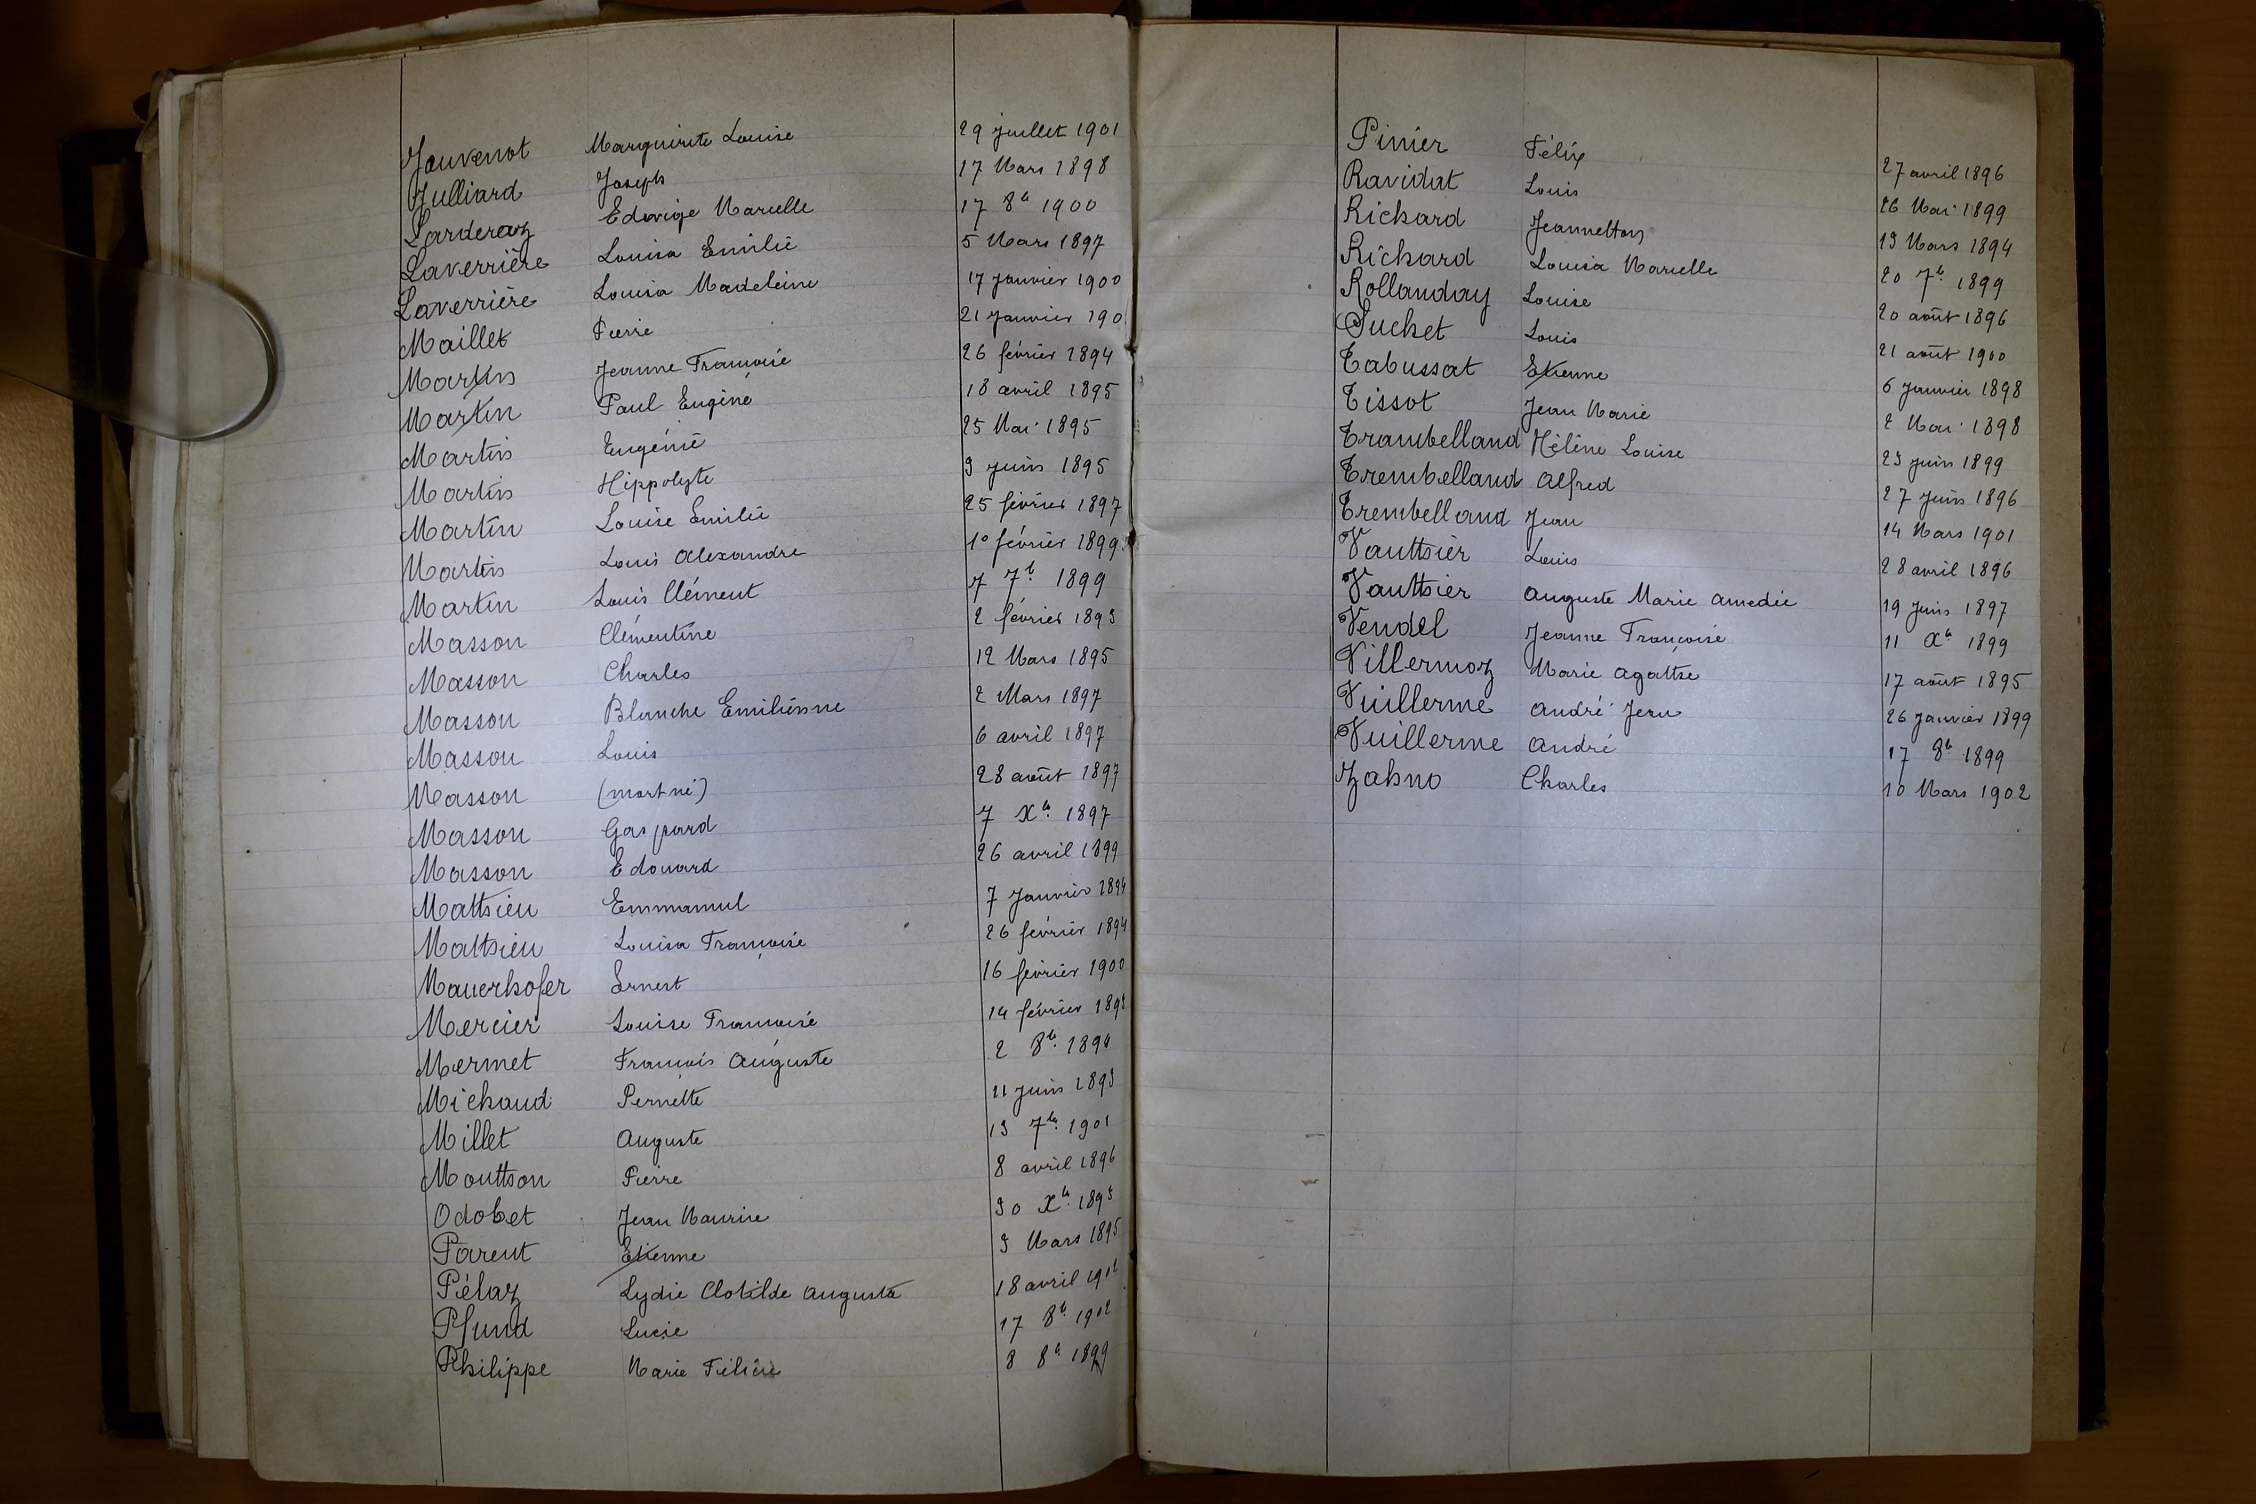 Jouvenot Marguerite Louise 29 juillet 1901
Julliard Joseph 17 Mars 1898
Larderaz Edwige Marcelle 17 8b 1900
Laverrière Louisa Emilie 5 Mars 1897
Laverrière Louisa Madeleine 17 Janvier 1900
Maillet Pierre 21 Janvier 190
Martin Jeanne Françoise 26 février 1894
Martin Paul Eugène 18 avril 1895
Martin Eugénie 25 Mai 1895
Martin Hippolyte 9 Juin 1895
Martin Louise Emilie 25 février 1897
Martin Louis Alexandre 10 février 1899
Martin Louis Clément 7 7b. 1899
Masson Clémentine 2 février 1893
Masson Charles 12 Mars 1895
Masson Blanche Emilienne 2 Mars 1897
Masson Louis 6 avril 1897
Masson (mort né) 28 août 1897
Masson Gaspard 7 Xb. 1897
Masson Edouard 26 avril 1899
Mathieu Emmanuel 7 Janvier 1894
Mathieu Louisa Françoise 26 février 1894
Mauerhofer Ernest 16 février 1900
Mercier Louise Françoise 14 février
Mermet François Auguste 2 8b. 1894
Michaud Pernette 11 Juin 1893
Millet Auguste 13 7b. 1901
Mouthon Pierre 8 avril 1896
Odobet Jean Maurice 30 Xb. 1893
Parent Etienne 3 Mars 1895
Pélaz Lydie Clotilde Augusta 18 avril 1902
Pfund Lucie 17 8b. 1902
Philippe Marie Félicie 8 8b 1899
Pinier Félix 27 avril 1896
Ravidat Louis 26 Mai 1899
Richard Jeannetton 13 Mars 1894
Richard Louisa Marcelle 20 7b. 1899
Rollanday Louise 20 août 1896
Suchet Louis 21 août 1900
Tabussat Etienne 6 Janvier 1898
Tissot Jean Marie 2 Mai 1898
Trambelland Hélène Louise 23 Juin 1899
Trembelland Alfred 27 Juin 1896
Trembelland Jean 14 Mars 1901
Vauthier Louis 28 avril 1896
Vauthier Auguste Marie Amedée 19 Juin 1897
Vendel Jeanne Françoise 11 Xb. 1899
Villermoz Marie Agathe 17 août 1895
Vuillerme André Jean 26 Janvier 1899
Vuillerme André 17 8b. 1899
Zahno Charles 10 Mars 1902